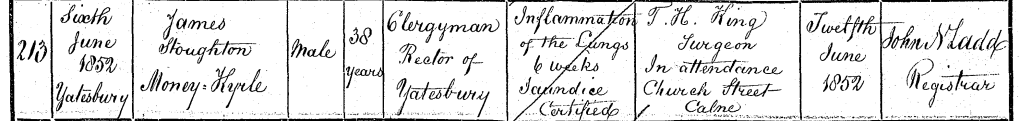 213
Sixth
June
1852
Yatesbury
James
Stoughton
Money=Kyrle
Male
38
years
Clergyman
Rector of
Yatesbury
Inflammation
of the Lungs
6 weeks
Jaundice
Certified
T. H. King
Surgeon
In attendance
Church Street
Calne
Twelfth
June
1852
John N Ladd
Registrar